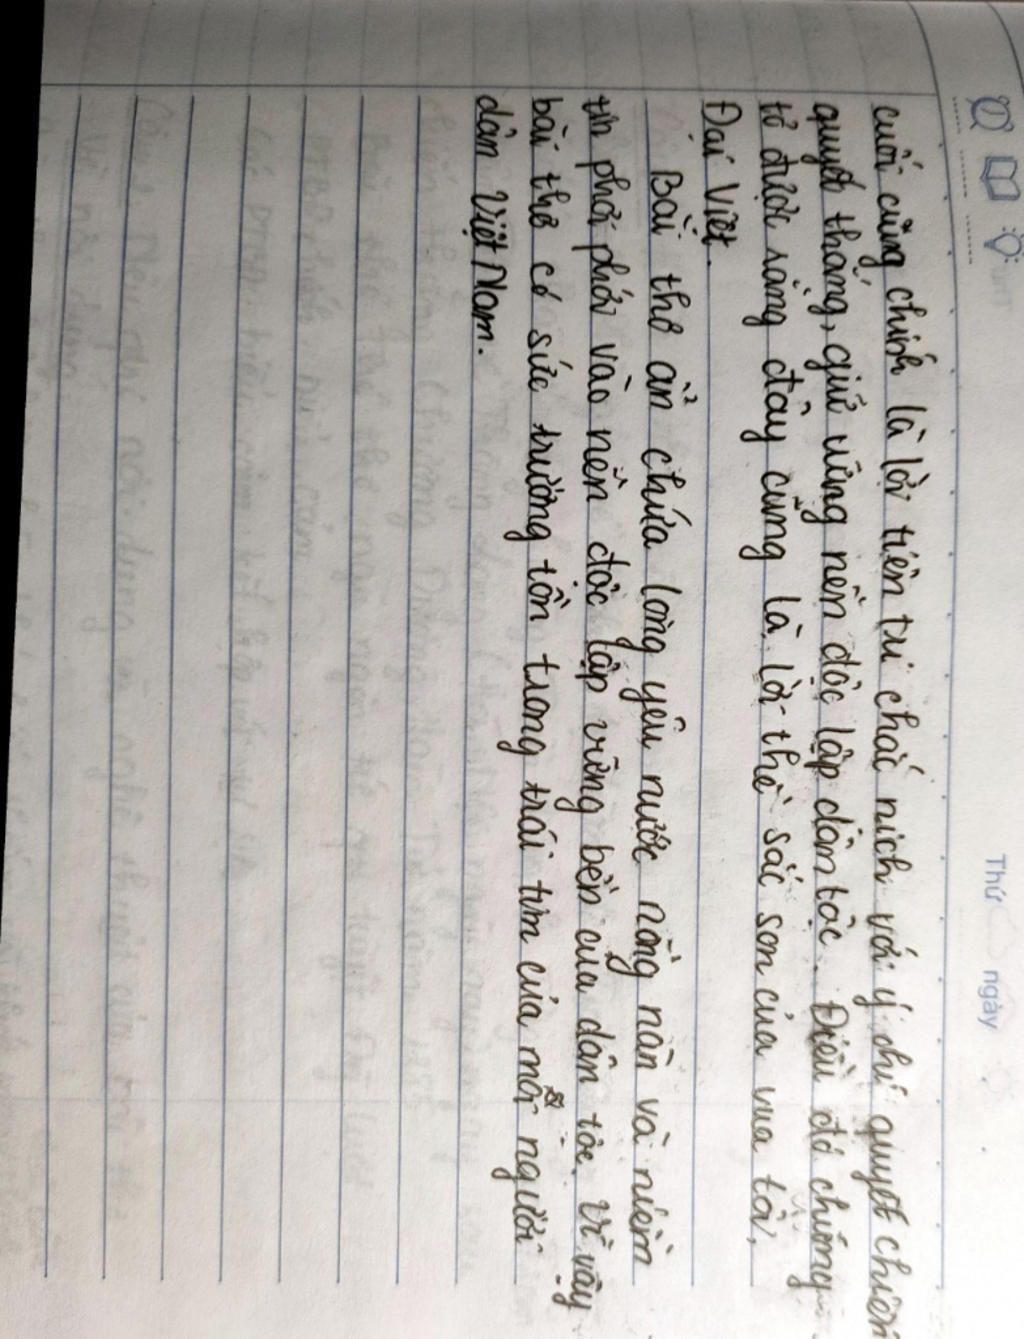 Thứ ngày
cuối cũng chính là lời tiên tri chắc nịch với ý chí quyết chiến
quyết thắng, giữ vững nền độc lập dân tộc. Điều đó chứng
tỏ được rằng đây cũng là lời thề sắc son của vua tôi
Đại Việt.
Bài thơ ẩn chứa lòng yêu nước nồng nàn và niềm
tin phơi phới vào nền độc lập vững bền của dân tộc. Vì vậy
bài thơ có sức trường tồn trong trái tim của mỗi người
dân Việt Nam.